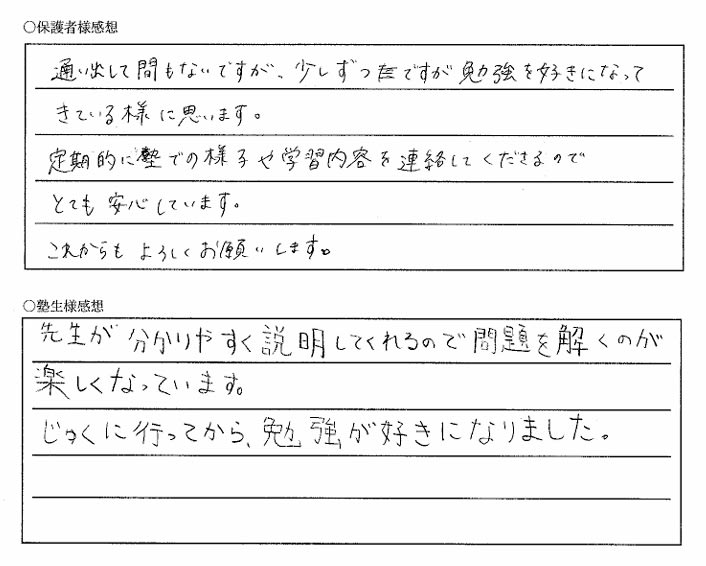 ○保護者様感想
通い出して間もないですが、少しずつですが勉強を好きになって
きている様に思います。
定期的に塾での様子や学習内容を連絡してくださるので
とても安心しています。
これからもよろしくお願いします。
○塾生様感想
先生が分かりやすく説明してくれるので問題を解くのが
楽しくなっています。
じゅくに行ってから、勉強が好きになりました。